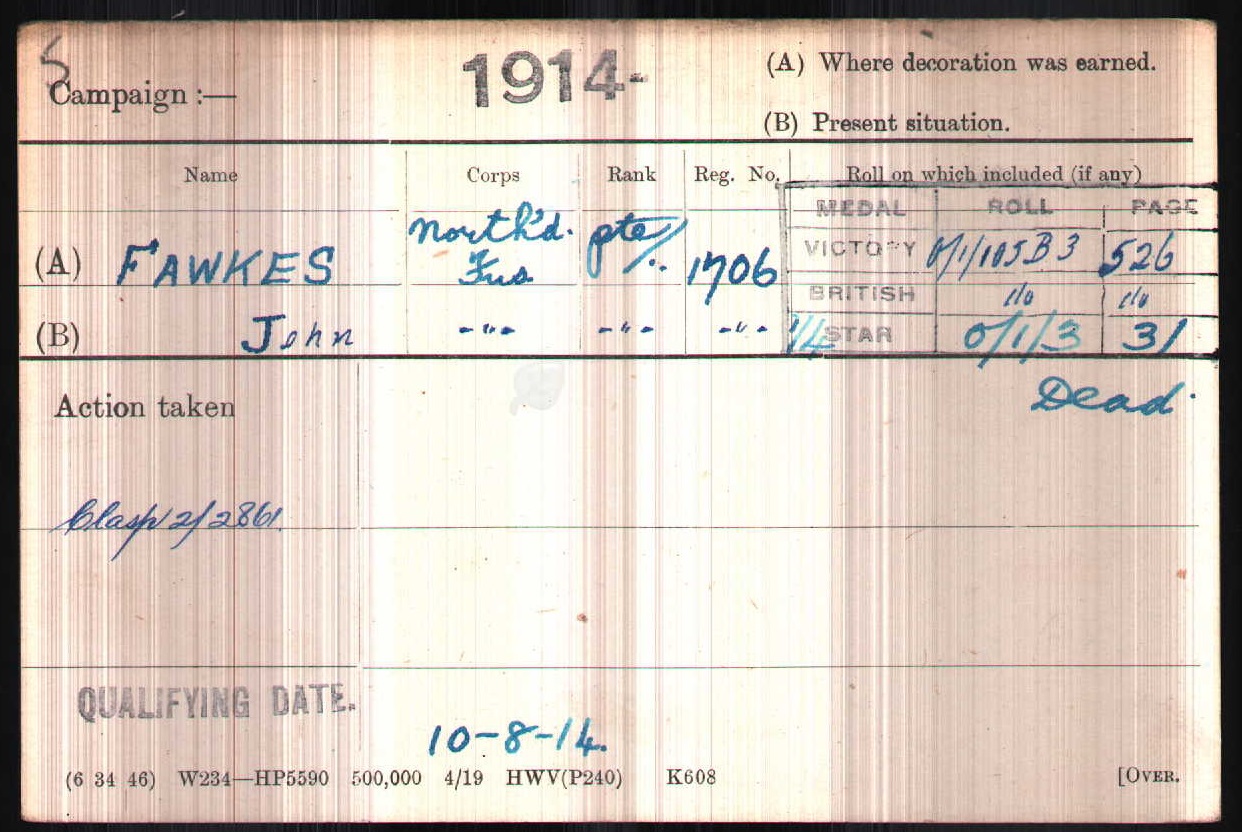 5
Campaign :—
1914-
(A) Where decoration was earned.
(B) Present situation.
Name Corps Rank Reg. No. Roll on which included (if any)
MEDAL ROLL PAGE
(A) FAWKES North'd. Fus pte/. 1706
VICTORY O/1/105B3 526
BRITISH do do
(B) John -"- -"- -"-
14 STAR O/1/3 31
Action taken
Dead.
Clasp 2/2861.
QUALIFYING DATE.
10-8-14.
(6 34 46) W234—HP5590 500,000 4/19 HWV(P240) K608 [OVER.